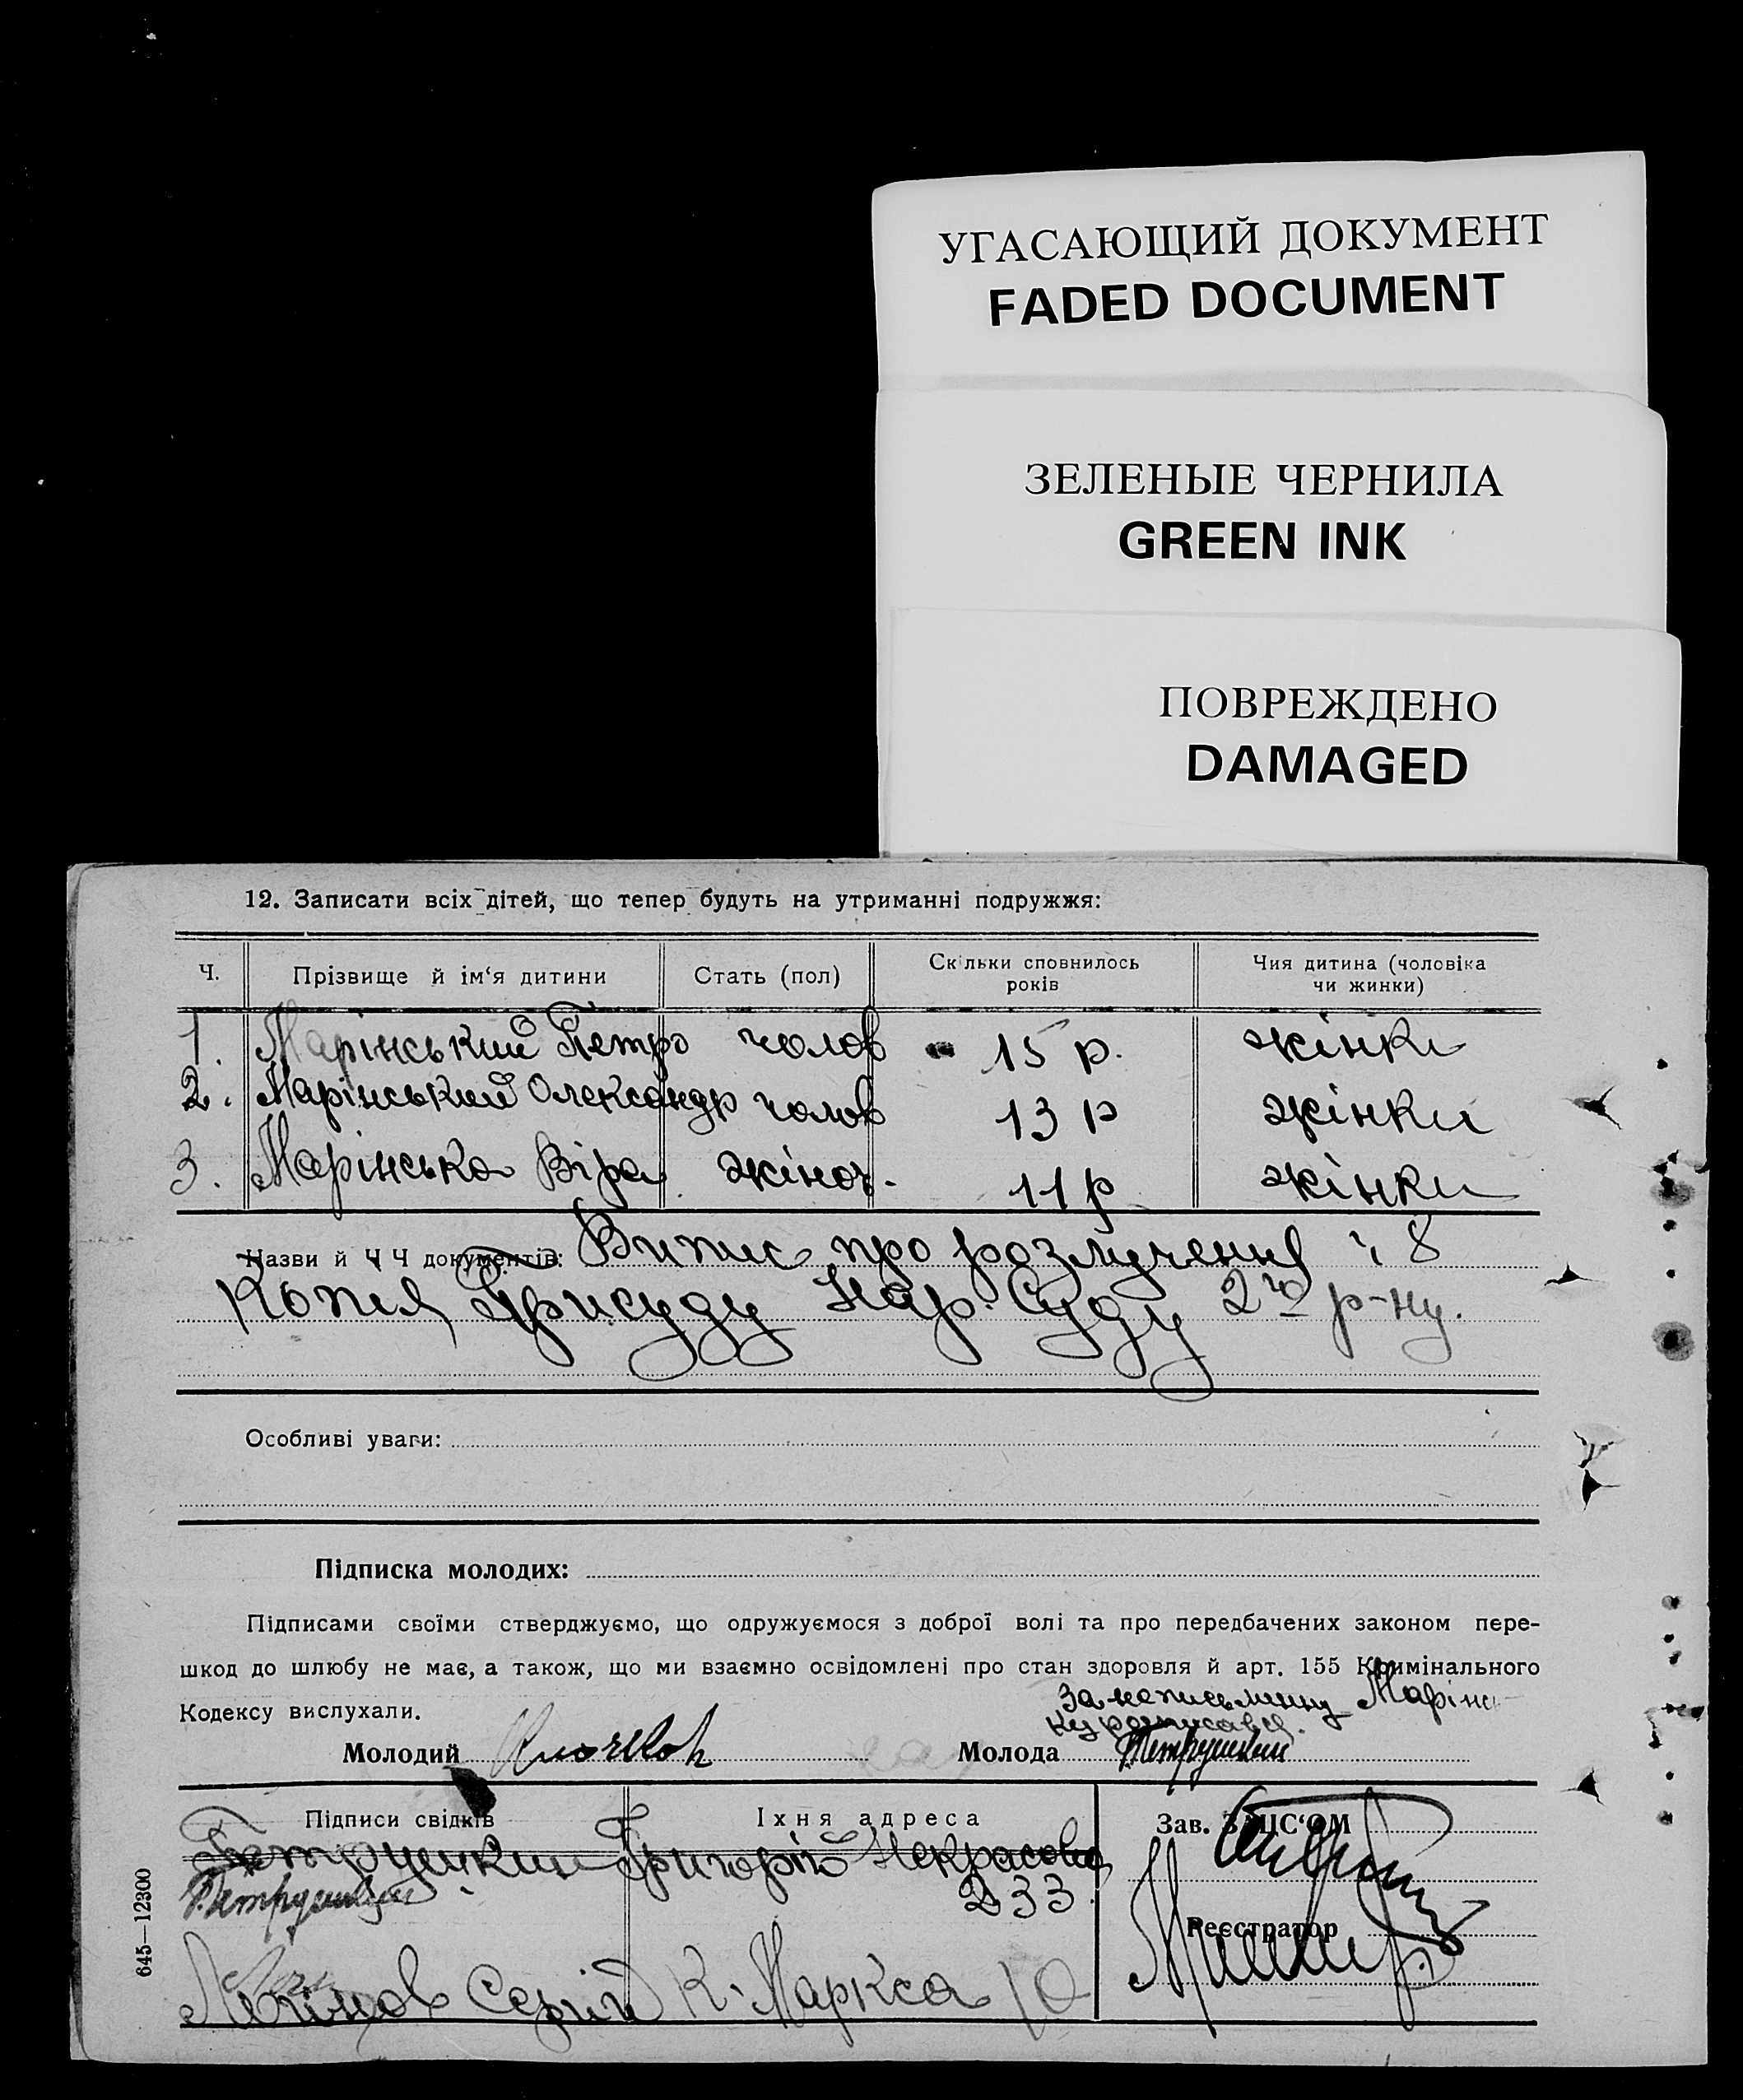 УГАСАЮЩИЙ ДОКУМЕНТ
FADED DOCUMENT
ЗЕЛЕНЫЕ ЧЕРНИЛА
GREEN INK
ПОВРЕЖДЕНО
DAMAGED
12. Записати всіх дітей, що тепер будуть на утриманні подружжя:
Ч. Прізвище й ім‘я дитини Стать (пол) Скільки сповнилось років Чия дитина (чоловіка чи жинки)
1. Марінський Петро чолов 15 р. жінки
2. Марінський Олександр чолов 13 р жінки
3. Марінська Віра жіноч. 11 р жінки
Назви й Ч Ч документів: Випис про розлучення ч 8
Копія Присуду Нар. Суду 2го р-ну.
Особливі уваги:
Підписка молодих:
Підписами своїми стверджуємо, що одружуємося з доброї волі та про передбачених законом пере-
шкод до шлюбу не має, а також, що ми взаємно освідомлені про стан здоровля й арт. 155 Кримінального
Кодексу вислухали.
За неписьменну Марінс-
ку росписався
Молодий Клочков Молода
Підписи свідків Їхня адреса Зав. ЗАЦС‘ОМ
Григорій Некрасова
233
Реєстратор
Сергій К. Маркса 10
645—12300